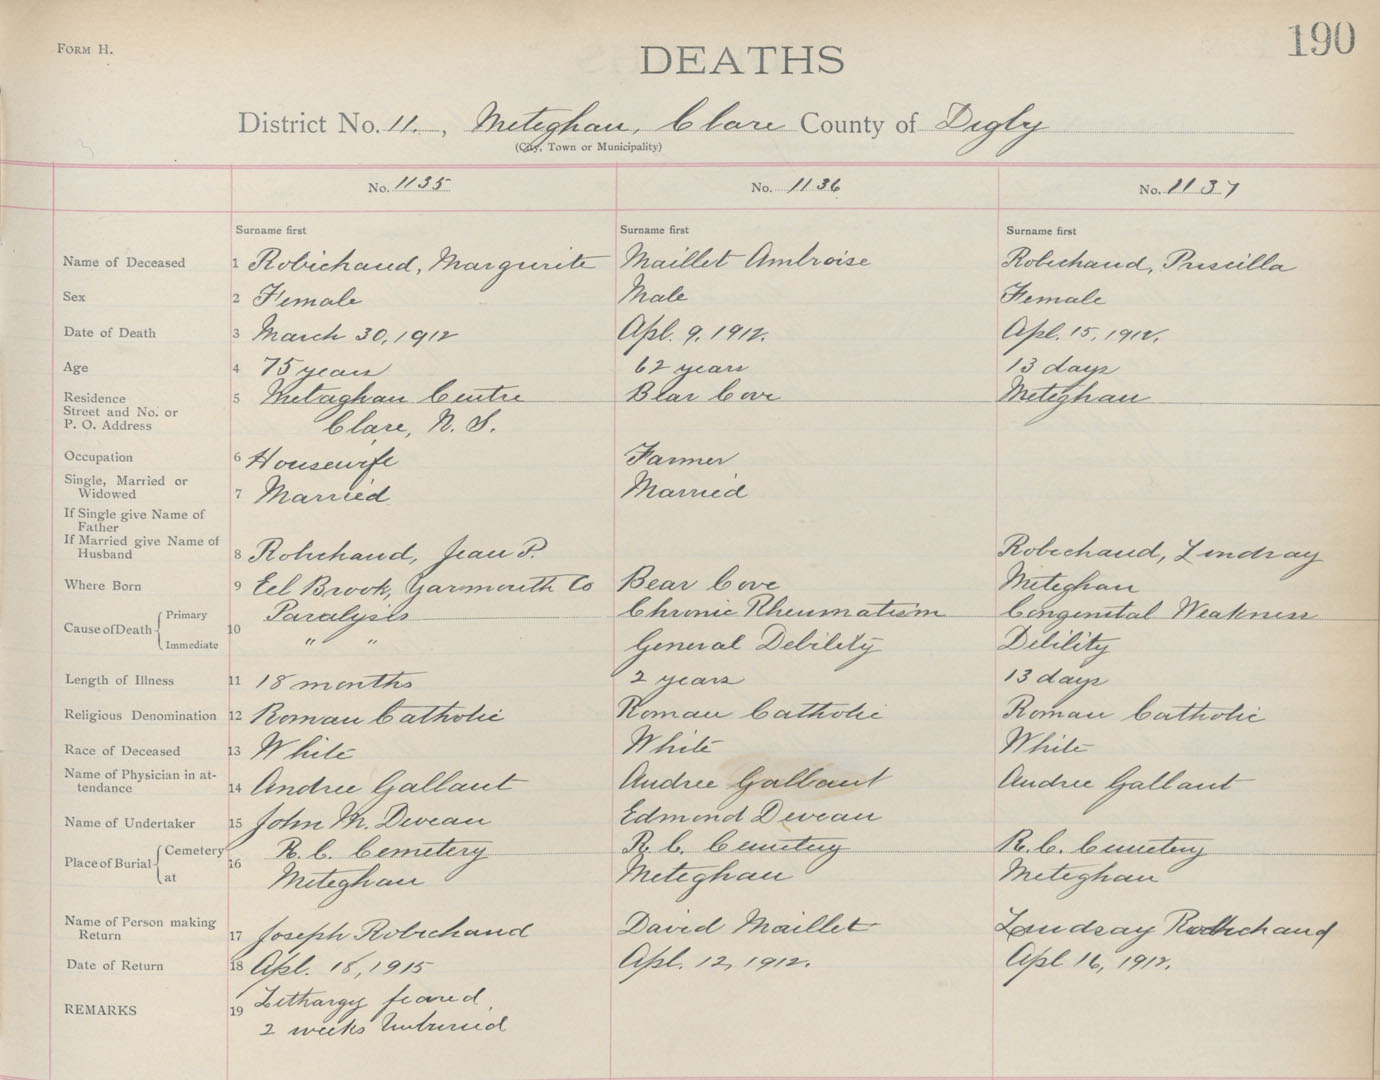 FORM H.
190
DEATHS
District No. 11., Meteghan, Clare County of Digby
(City, Town or Municipality)
No. 1135 No. 1136 No. 1137
Surname first Surname first Surname first
Name of Deceased 1 Robichaud, Margurite Maillet Ambroise Robichaud, Priscilla
Sex 2 Female Male Female
Date of Death 3 March 30, 1912 Apl. 9, 1912. Apl. 15, 1912.
Age 4 75 years 62 years 13 days
Residence 5 Metaghan Centre Bear Cove Meteghan
Street and No. or
P. O. Address Clare, N. S.
Occupation 6 Housewife Farmer
Single, Married or
Widowed 7 Married Married
If Single give Name of
Father
If Married give Name of
Husband 8 Robichaud, Jean P. Robichaud, Lindsay
Where Born 9 Eel Brook, Yarmouth Co Bear Cove Meteghan
Cause of Death 10 Primary Paralysis Chronic Rheumatism Congenital Weakness
Immediate " " General Debility Debility
Length of Illness 11 18 months 2 years 13 days
Religious Denomination 12 Roman Catholic Roman Catholic Roman Catholic
Race of Deceased 13 White White White
Name of Physician in at-
tendance 14 Andree Gallant Andree Gallant Andree Gallant
Name of Undertaker 15 John M. Deveau Edmond Deveau
Place of Burial 16 Cemetery R. C. Cemetery R. C. Cemetery R. C. Cemetery
at Meteghan Meteghan Meteghan
Name of Person making
Return 17 Joseph Robichaud David Maillet Lindsay Robichaud
Date of Return 18 Apl. 18, 1915 Apl. 12, 1912. Apl 16, 1912.
REMARKS 19 Lethargy feared
2 weeks Unburied